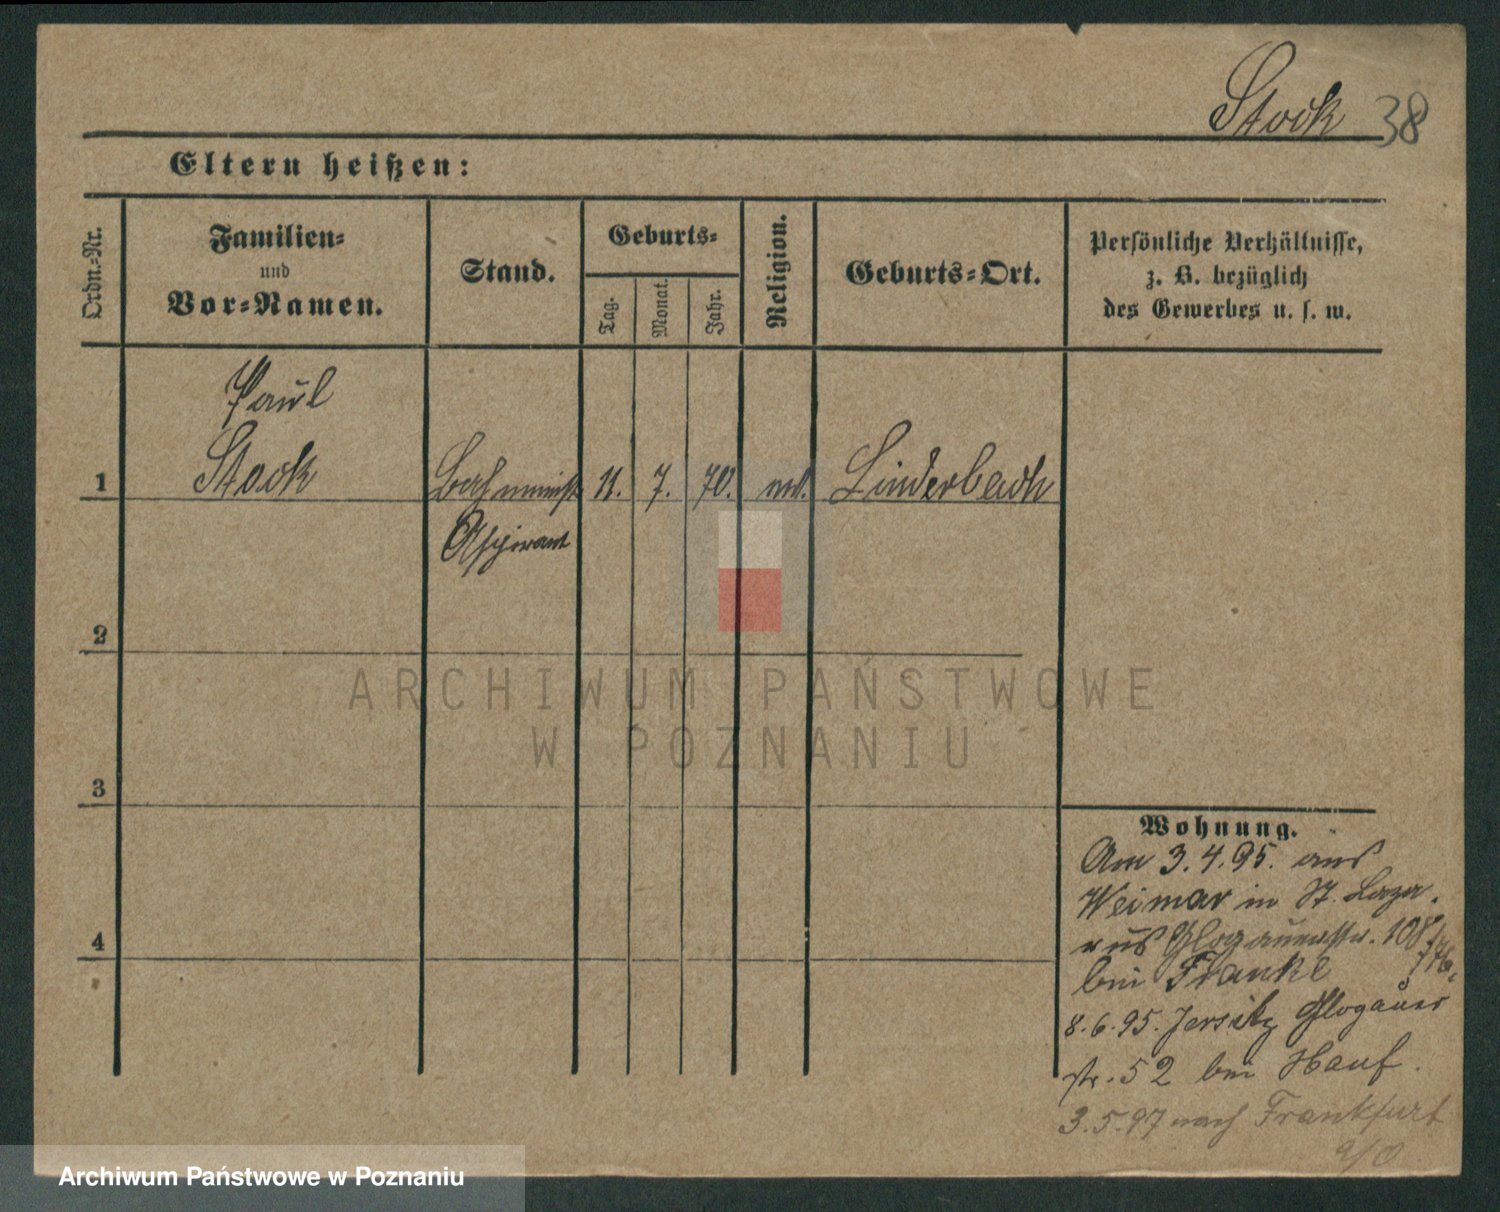 Stock 38
Eltern heißen:
Ordn.-Nr.
Familien-
und
Vor-Namen.
Stand.
Geburts-
Tag.
Monat.
Jahr.
Religion.
Geburts-Ort.
Persönliche Verhältnisse,
z. B. bezüglich
des Gewerbes u. s. w.
Paul
1 Stock 11. 7. 70. Linderbach
Aspirant
2
3
4
Wohnung.
Am 3.4.95. aus
Weimar in St. Laza-
rus Glogauerstr. 108
bei Franke
8.6.95. Jersitz Glogauer
str. 52 bei Hauf.
3.5.97 nach Frankfurt
a/O
ARCHIWUM PAŃSTWOWE
W POZNANIU
Archiwum Państwowe w Poznaniu